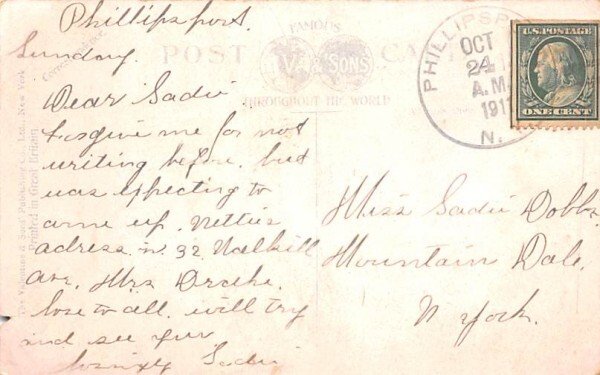 Phillipsport.
Sunday.
Dear Sadie
forgive me for not
writing before, but
was expecting to
come up. Netties
adress is 32 Wallkill
Ave, Mrs Drake.
love to all. will try
and see you
Sadie
POST CARD
FAMOUS
& SONS
THROUGHOUT THE WORLD
Correspondence
& Sons Publishing Co., Ltd., New York
Printed in Great Britain
PHILLIPSP
OCT
24
A.M.
191
N.
U.S. POSTAGE
ONE CENT
Miss Sadie Dobbs
Mountain Dale.
N York.